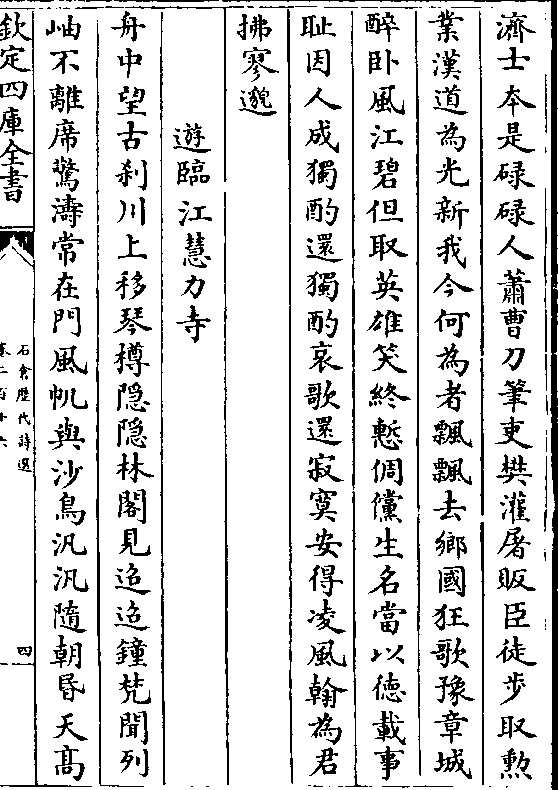 濟士夲是碌碌人蕭曹刀筆吏樊灌屠販臣徒歩取勲
業漢道為光新我今何為者飄飄去鄉國狂歌豫章城
醉卧風江碧但取英雄笑終慙倜儻生名當以德載事
耻因人成獨酌還獨酌哀歌還寂寞安得凌風翰為君
拂寥邈
遊臨江慧力寺
舟中望古刹川上移琴樽隠隠林閣見迢迢鐘梵聞列
岫不離席驚濤常在門風帆與沙鳥汎汎隨朝昏天髙
欽定四庫全書
石倉歴代詩選
卷二百十六
四